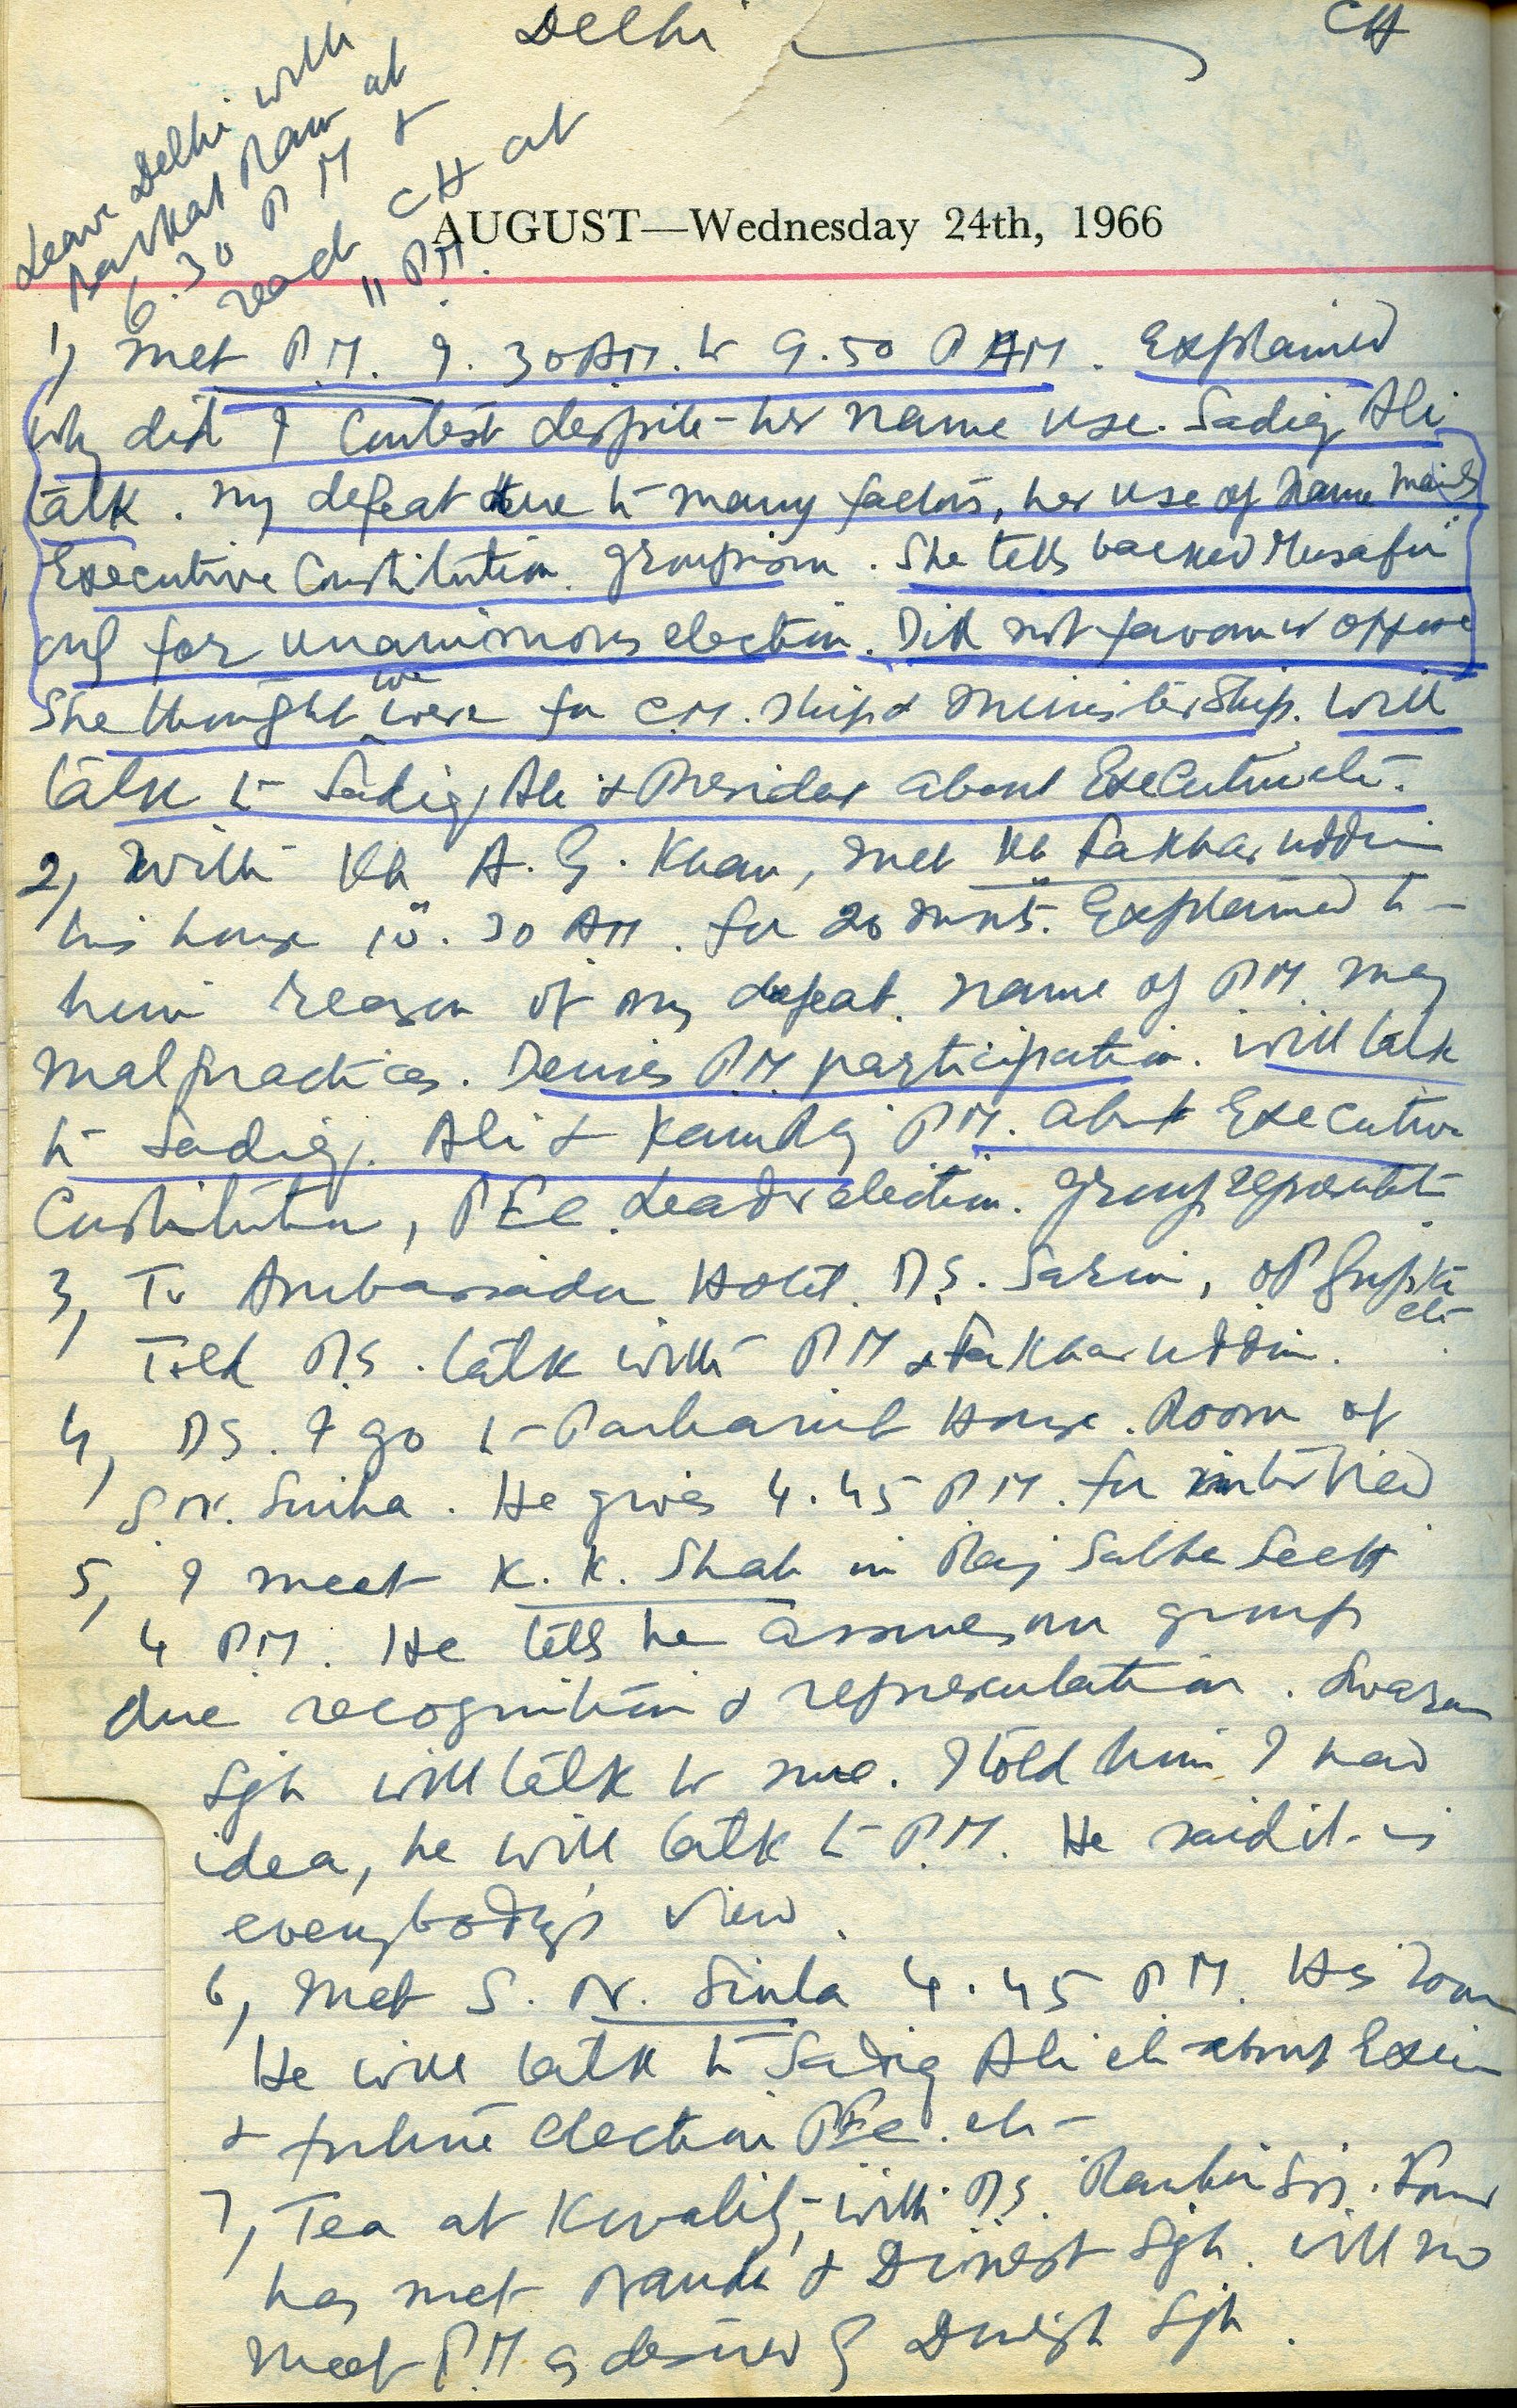 Delhi CH
Leave Delhi with
Barkat Ram at
6.30 PM &
reach CH at
11 PM.
AUGUST—Wednesday 24th, 1966
1, Met P.M. 9.30 AM. to 9.50 AM. Explained
why did I contest despite her name use. Sadiq Ali
talk. my defeat due to many factors, her use of name mainly
Executive Constitution. groupism. She tells backed Musafir
only for unanimous election. Did not favour or oppose
She thought we were for C.M. ship & ministership. Will
talk to Sadiq Ali & President about Executive etc.
2, With Kh A. G. Khan, met Kh Fakharuddin
his house 10.30 AM. for 20 mnts. Explained to
him reason of my defeat. name of PM
malpractices. Denies PM participation. will talk
to Sadiq. Ali & Kamraj PM. about Executive
Constitution, PEC Leader election. group representation
3, To Ambassador Hotel. D.S. Sarin, OP Gupta etc
Told D.S. talk with PM & Fakharuddin.
4, DS. I go to Parliament House. Room of
S.N. Sinha. He gives 4.45 PM. for interview
5, I meet K. K. Shah in Raj Sabha Seat
4 PM. He tells he assures our group
due recognition & representation. Swaran
Sgh will talk to me. I told him I had
idea, he will talk to P.M. He said it is
everybody's view.
6, Met S. N. Sinha 4.45 PM. His room
He will talk to Sadiq Ali etc about Execu
& future election PEC. etc
7, Tea at Kwality, with DS.
has met Nanda & Dinesh Sgh. will
meet PM as desired by Dinesh Sgh.